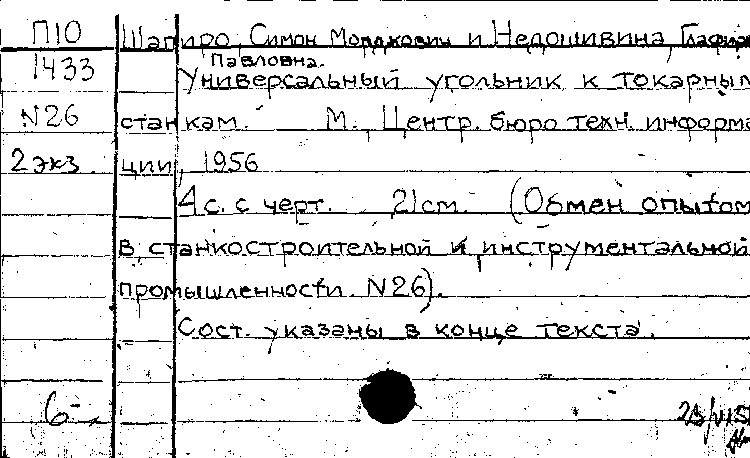 П10 Шапиро, Симон Мордкович и Недошивина, Глафира
Павловна.
1433 Универсальный угольник к токарным
N26 станкам. М., Центр. бюро техн. информа
2 экз. ции, 1956
4 с. с черт. 21 см. (Обмен опытом
в станкостроительной и инструментальной
промышленности. N26).
Сост. указаны в конце текста.
6-,